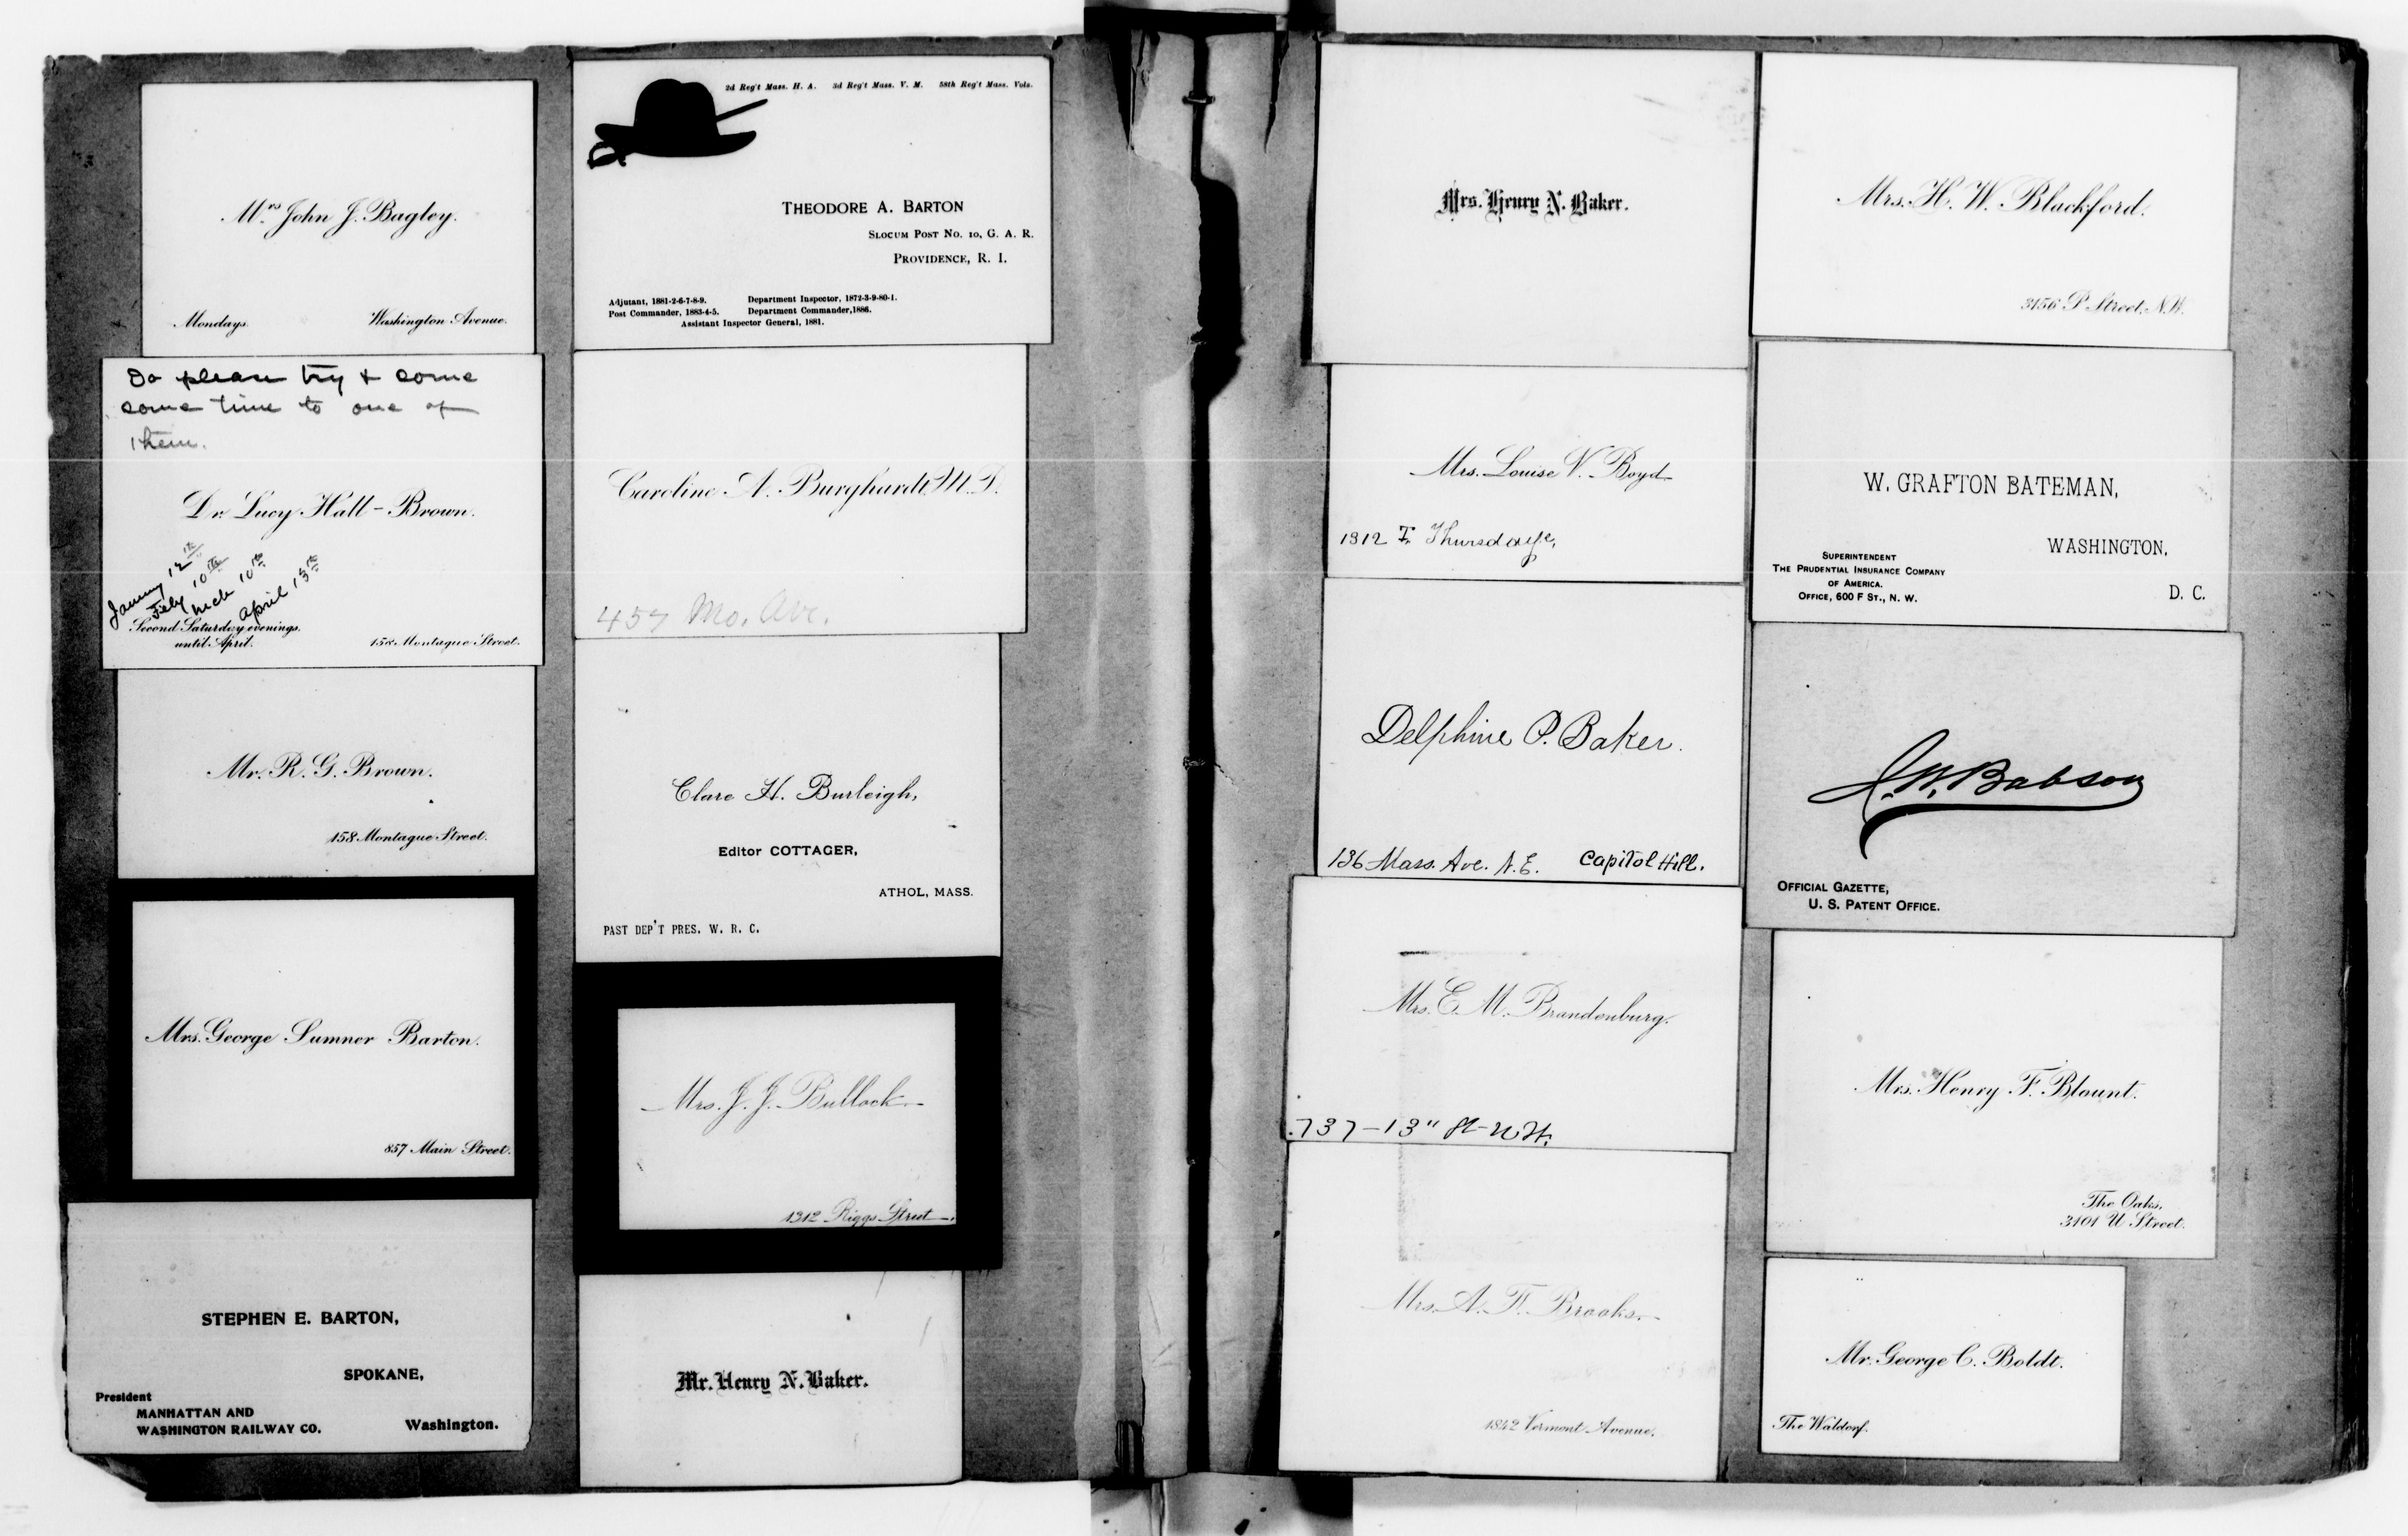 Mrs John J. Bagley.
Mondays.
Washington Avenue.
Do please try & come
some time to one of
them.
Dr. Lucy Hall-Brown.
January 12th
Feby 10th
Mch 10th
April 13th
Second Saturday evenings.
until April.
158 Montague Street.
Mr. R. G. Brown.
158 Montague Street.
Mrs. George Sumner Barton.
857 Main Street.
STEPHEN E. BARTON,
SPOKANE,
President
MANHATTAN AND
WASHINGTON RAILWAY CO.
Washington.
2d Reg't Mass. H. A. 3d Reg't Mass. V. M. 58th Reg't Mass. Vols.
THEODORE A. BARTON
SLOCUM POST NO. 10, G. A. R.
PROVIDENCE, R. I.
Adjutant, 1881-2-6-7-8-9. Department Inspector, 1872-3-9-80-1.
Post Commander, 1883-4-5. Department Commander, 1886.
Assistant Inspector General, 1881.
Caroline A. Burghardt, M.D.
457 Mo. Ave.
Clare H. Burleigh,
Editor COTTAGER,
ATHOL, MASS.
PAST DEP'T PRES. W. R. C.
Mrs. J. J. Bullock.
1312 Riggs Street.
Mr. Henry N. Baker.
Mrs. Henry N. Baker.
Mrs. Louise V. Boyd
1312 Thursdays,
Delphine P. Baker.
136 Mass. Ave. N.E. Capitol Hill.
Mrs. E. M. Brandenburg.
737-13" St-N.W.
Mrs. A. F. Brooks.
1842 Vermont Avenue.
Mrs. H. W. Blackford.
3156 P Street, N.W.
W. GRAFTON BATEMAN,
WASHINGTON,
D. C.
SUPERINTENDENT
THE PRUDENTIAL INSURANCE COMPANY
OF AMERICA.
OFFICE, 600 F ST., N. W.
J. W. Babson
OFFICIAL GAZETTE,
U. S. PATENT OFFICE.
Mrs. Henry F. Blount.
The Oaks,
3101 U Street.
Mr. George C. Boldt.
The Waldorf.